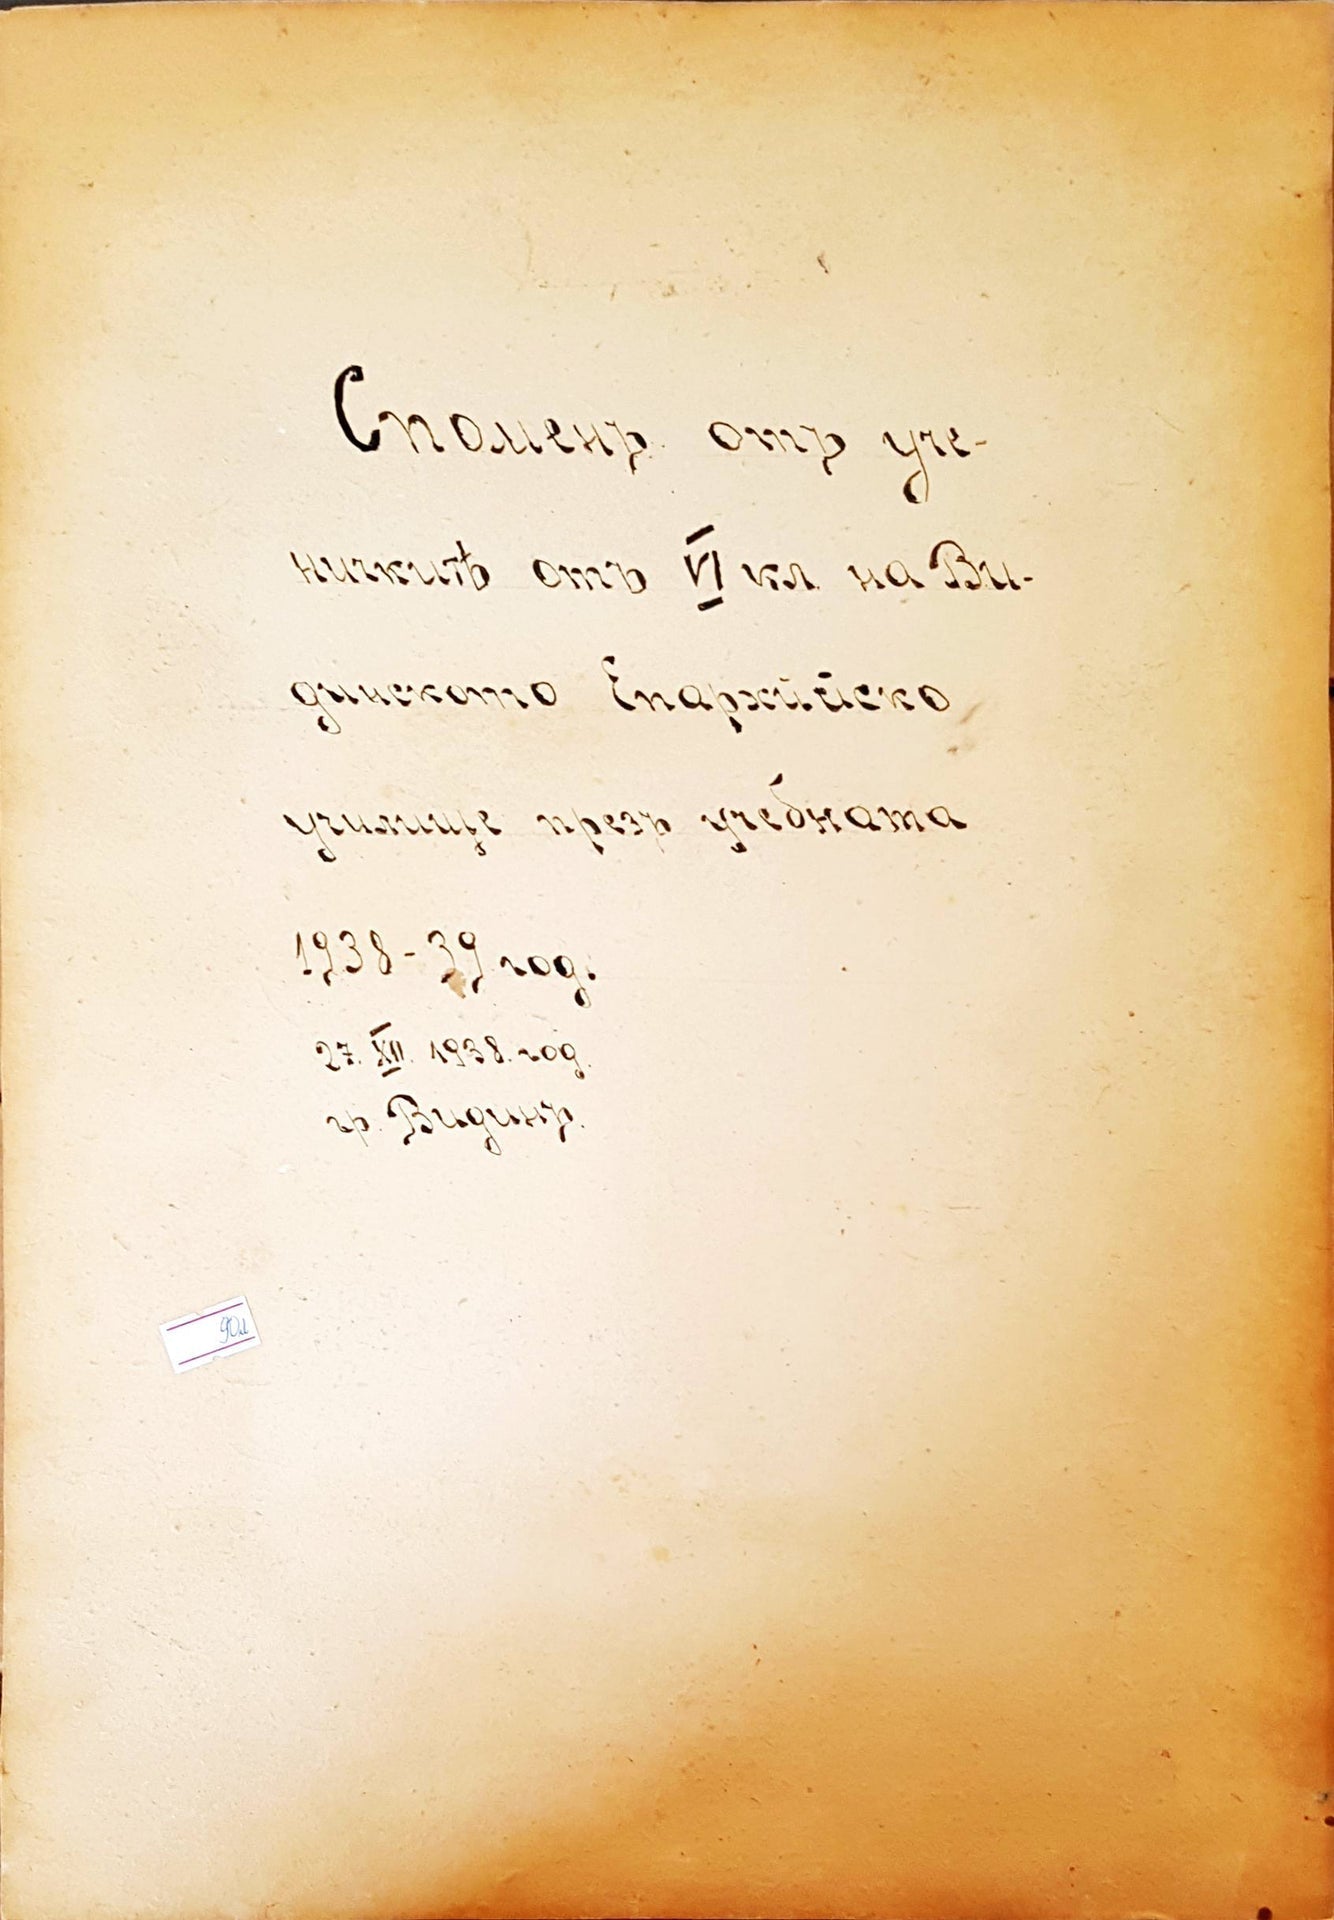 Споменъ отъ уче-
ничкитѣ отъ VI кл. на Ви-
динското Епархийско
училище презъ учебната
1938-39 год.
27. XII. 1938. год.
гр. Видинъ.
90л